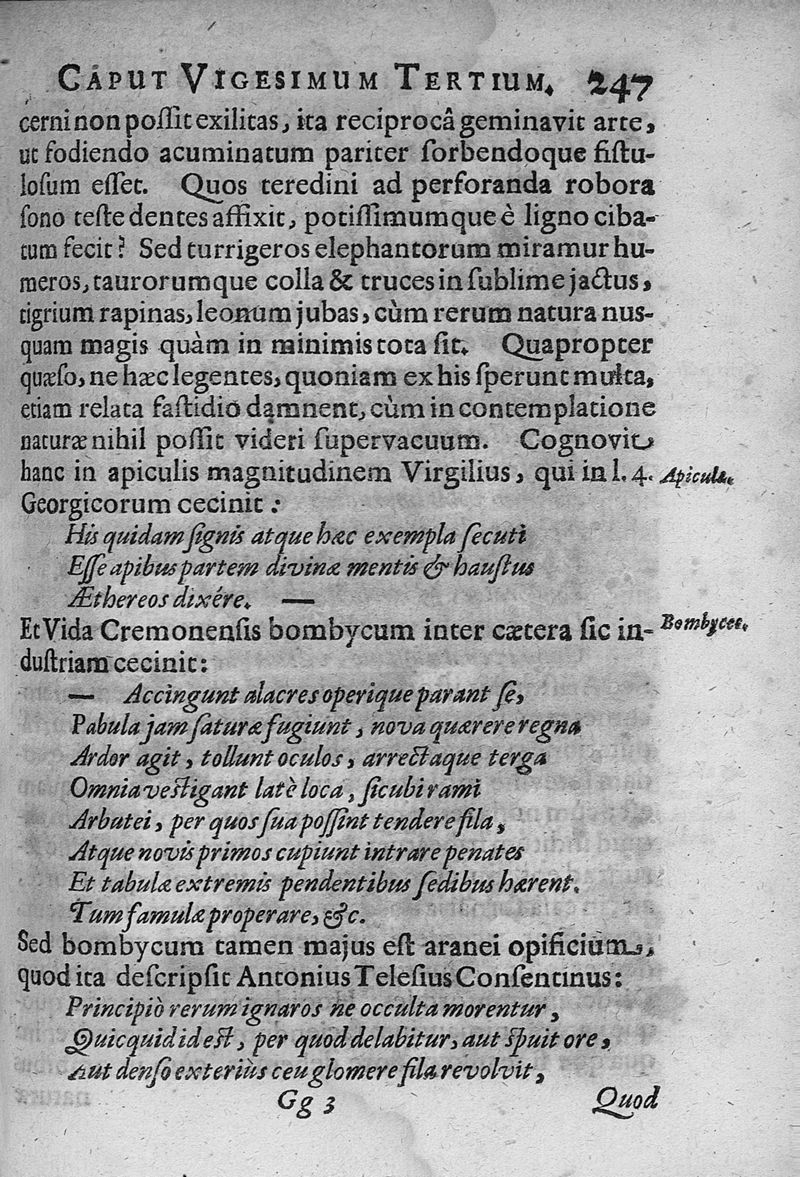 CAPUT VIGESIMUM TERTIUM. 247
cerni non poſſit exilitas, ita reciprocâ geminavit arte,
ut fodiendo acuminatum pariter ſorbendoque fiſtu-
loſum eſſet. Quos teredini ad perforanda robora
ſono teſte dentes affixit, potiſſimumque è ligno ciba-
tum fecit? Sed turrigeros elephantorum miramur hu-
meros, taurorumque colla & truces in ſublime jactus,
tigrium rapinas, leonum jubas, cùm rerum natura nus-
quam magis quàm in minimis tota ſit. Quapropter
quæſo, ne hæc legentes, quoniam ex his ſpernunt multa,
etiam relata faſtidio damnent, cùm in contemplatione
naturæ nihil poſſit videri ſupervacuum. Cognovit
hanc in apiculis magnitudinem Virgilius, qui in l. 4. Apiculæ.
Georgicorum cecinit:
His quidam ſignis atque hæc exempla ſecuti
Eſſe apibus partem divinæ mentis & hauſtus
Æthereos dixére. —
Et Vida Cremonenſis bombycum inter cætera ſic in- Bombyces.
duſtriam cecinit:
— Accingunt alacres operique parant ſe,
Pabula jam ſaturæ fugiunt, nova quærere regna
Ardor agit, tollunt oculos, arrectaque terga
Omnia veſtigant latè loca, ſicubi rami
Arbutei, per quos ſua poſſint tendere fila,
Atque novis primos cupiunt intrare penates
Et tabulæ extremis pendentibus ſedibus hærent.
Tum famulæ properare, &c.
Sed bombycum tamen majus eſt aranei opificium,
quod ita deſcripſit Antonius Teleſius Conſentinus:
Principiò rerum ignaros ne occulta morentur,
Quicquid id eſt, per quod delabitur, aut ſpuit ore,
Aut denſo exteriùs ceu glomere fila revolvit,
Gg 3 Quod